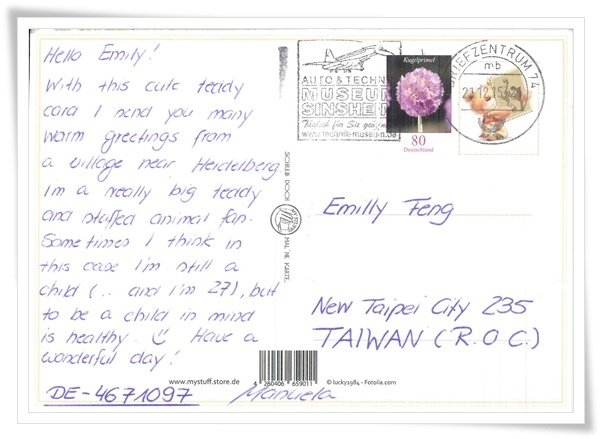 Hello Emily!
With this cute teddy
card I send you many
warm greetings from
a village near Heidelberg
Im a really big teddy
and stuffed animal fan.
Sometimes I think in
this case I'm still a
child (.. and I'm 27), but
to be a child in mind
is healthy. Have a
wonderful day!
DE-4671097
Manuela
www.mystuff.store.de
4 260406 659011
© lucky1984 - Fotolia.com
SCHREIB DOCH
MAL 'NE KARTE.
AUTO & TECHNIK
MUSEUM
SINSHEIM
Täglich für Sie geöffnet
www.technik-museum.de
Kugelprimel
80
Deutschland
BRIEFZENTRUM 74
mb
Emilly Feng
New Taipei City 235
TAIWAN (R.O.C.)